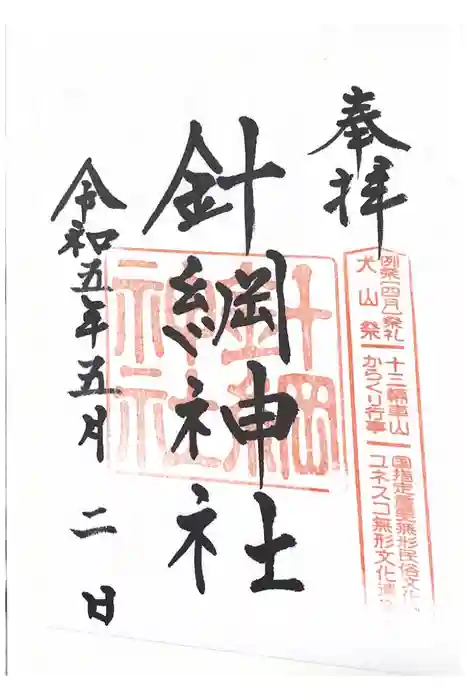 奉拝
例祭(四月)祭礼
犬山祭
十三輌車山
からくり行事
国指定重要無形民俗文化
ユネスコ無形文化遺
針綱神社
針綱神社
令和五年五月二日